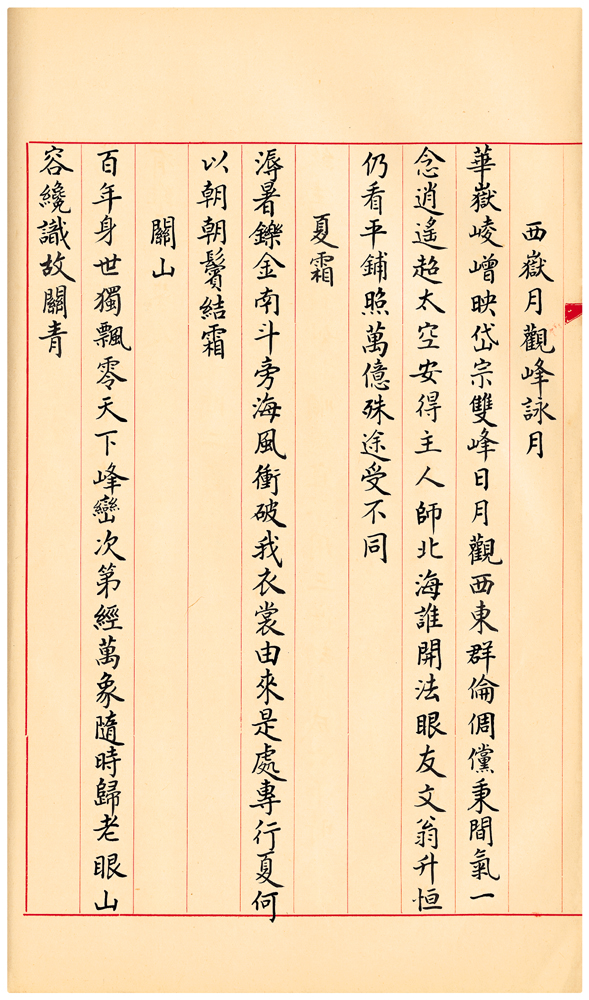 西嶽月觀峰詠月
華嶽崚嶒映岱宗雙峰日月觀西東群倫倜儻秉間氣一
念逍遙超太空安得主人師北海誰開法眼友文翁升恒
仍看平鋪照萬億殊途受不同
夏霜
溽暑鑠金南斗旁海風衝破我衣裳由來是處專行夏何
以朝朝鬢結霜
關山
百年身世獨飄零天下峰巒次第經萬象隨時歸老眼山
容纔識故關青